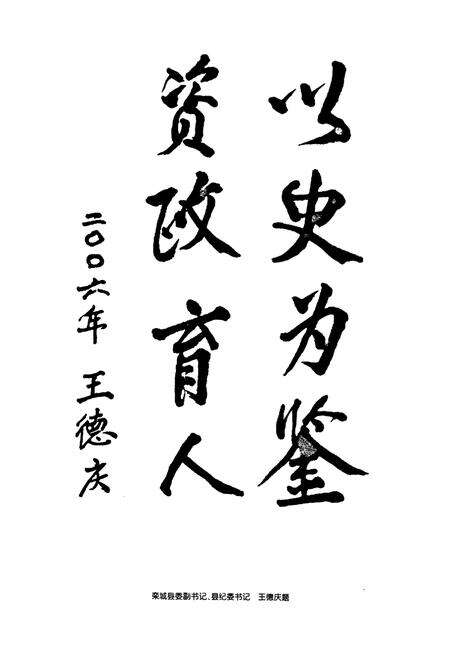 以史为鉴
资政育人
二〇〇六年 王德庆
栾城县委副书记、县纪委书记 王德庆题